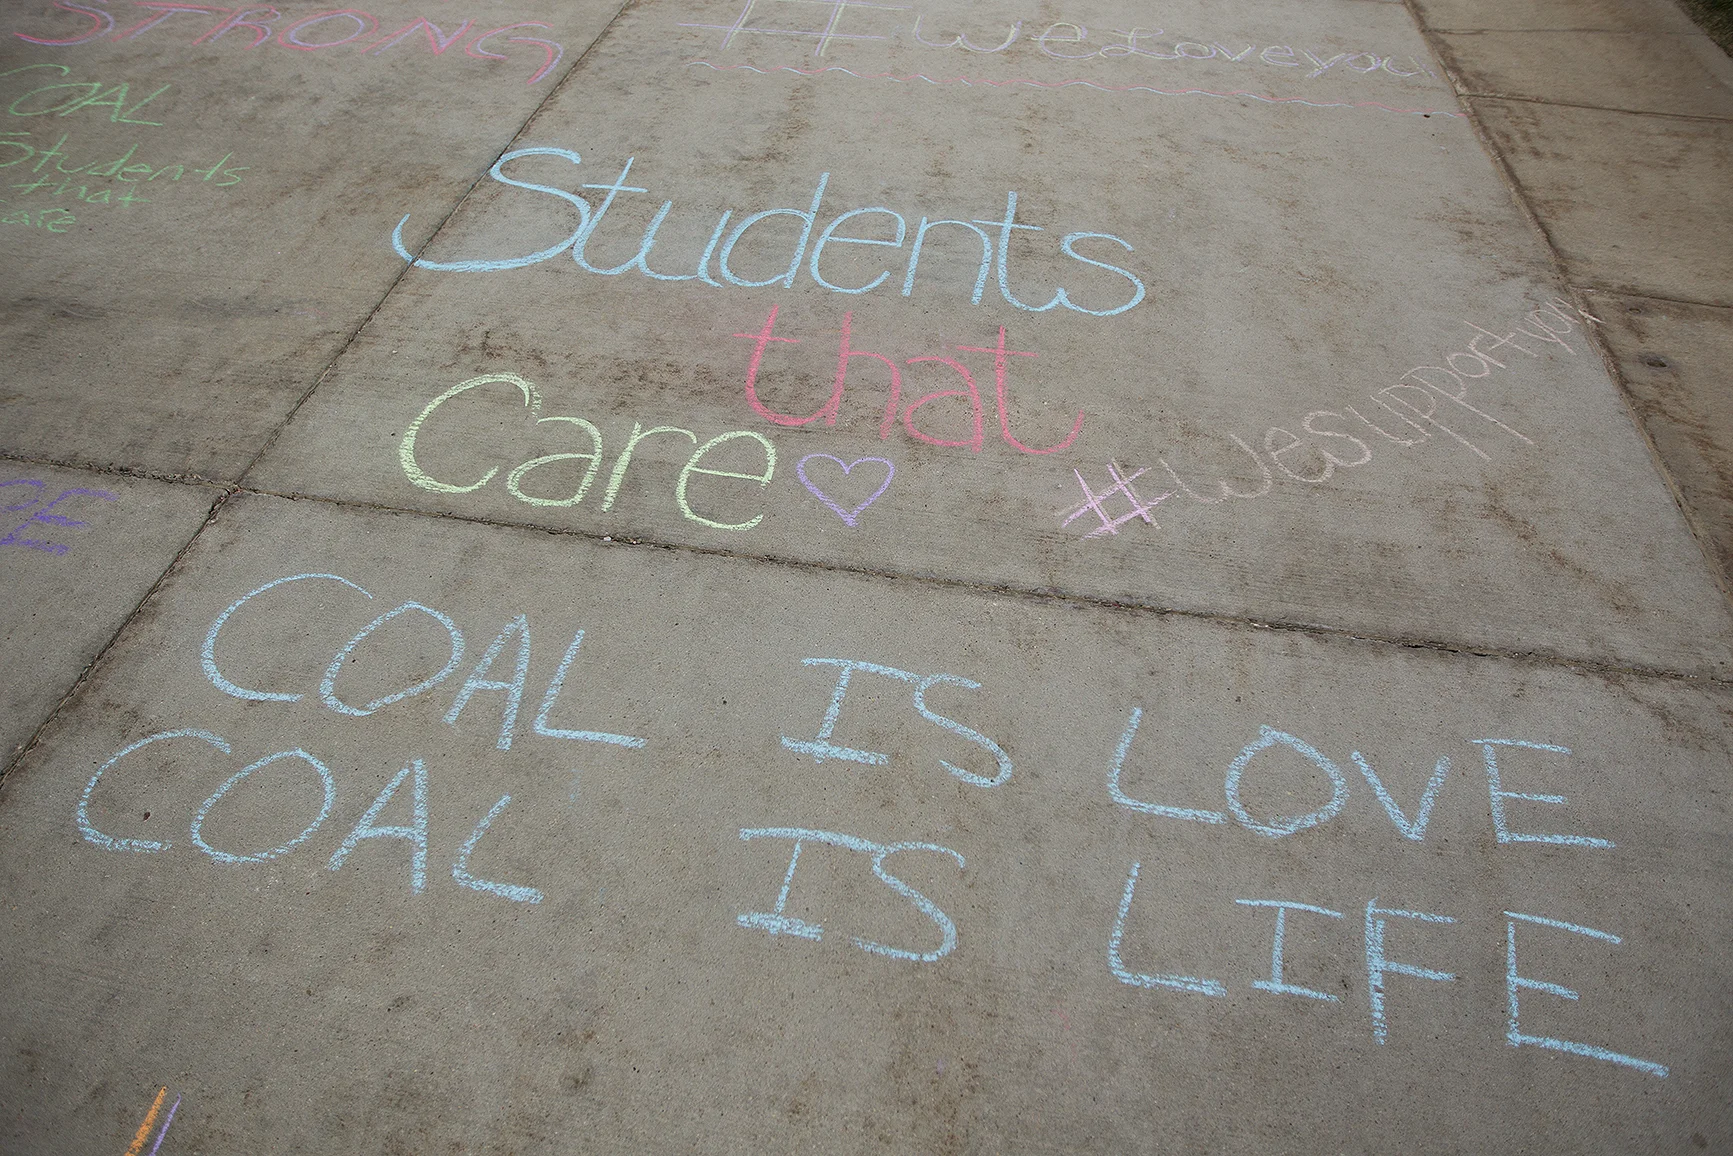 STRONG
COAL
Students
that
care
#weLoveyou
Students
that
Care
#Wesupport
COAL IS LOVE
COAL IS LIFE